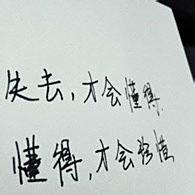 失去,才会懂得.
懂得,才会珍惜